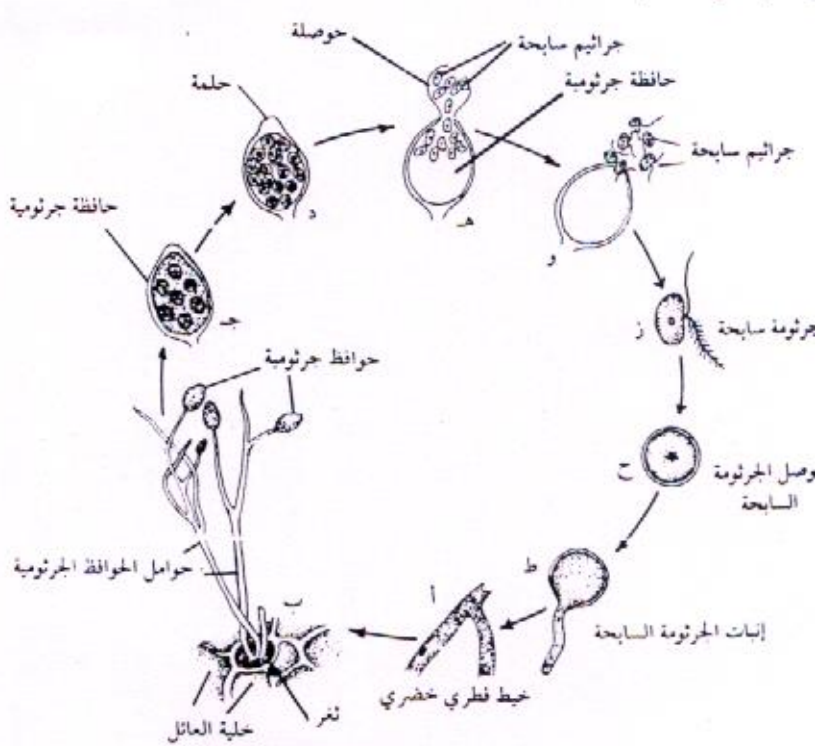 حوصلة
جراثيم سابحة
حافظة جرثومية
حلمة
جراثيم سابحة
حافظة جرثومية
د
هـ
و
جـ
ز
جرثومة سابحة
حوافظ جرثومية
ح
حوصل الجرثومة
السابحة
حوامل الحوافظ الجرثومية
ب
أ
ط
إنبات الجرثومة السابحة
خيط فطري خضري
ثغر
خلية العائل